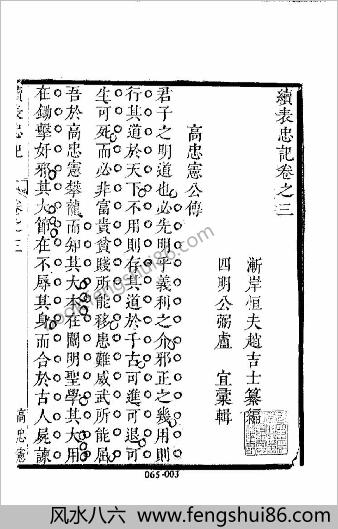 續表忠記卷之三
漸岸恒夫趙吉士纂編
四明公弼盧宜彙輯
高忠憲公傳
君子之明道也必先明乎義利之介邪正之幾用則
行其道於天下不用則存其道於千古可進可退可
生可死而必非富貴貧賤所能移患難威武所能屈
吾於高忠憲攀龍而知其大本在闡明聖學其大用
在鋤擊奸邪其大節在不辱其身而合於古人屍諫
續表忠記
卷之三
高忠憲
065-003
www.fengshui86.com
风水八六 - www.fengshui86.com